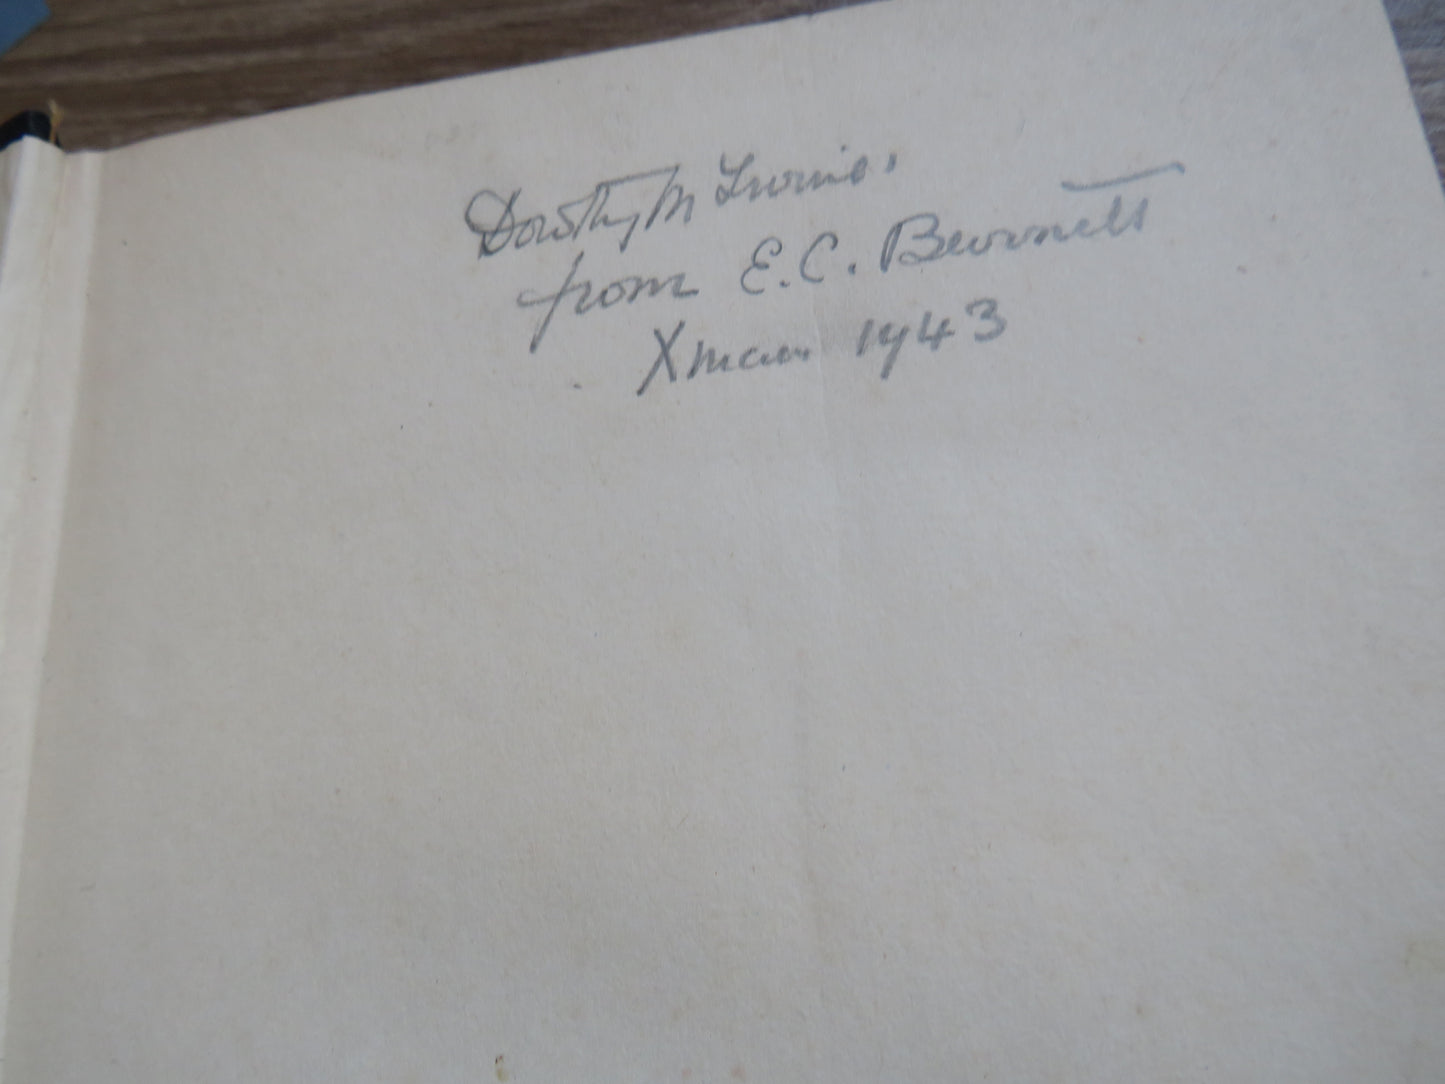 Dorothy M Irvine.
from E. C. Burnett
Xmas 1943